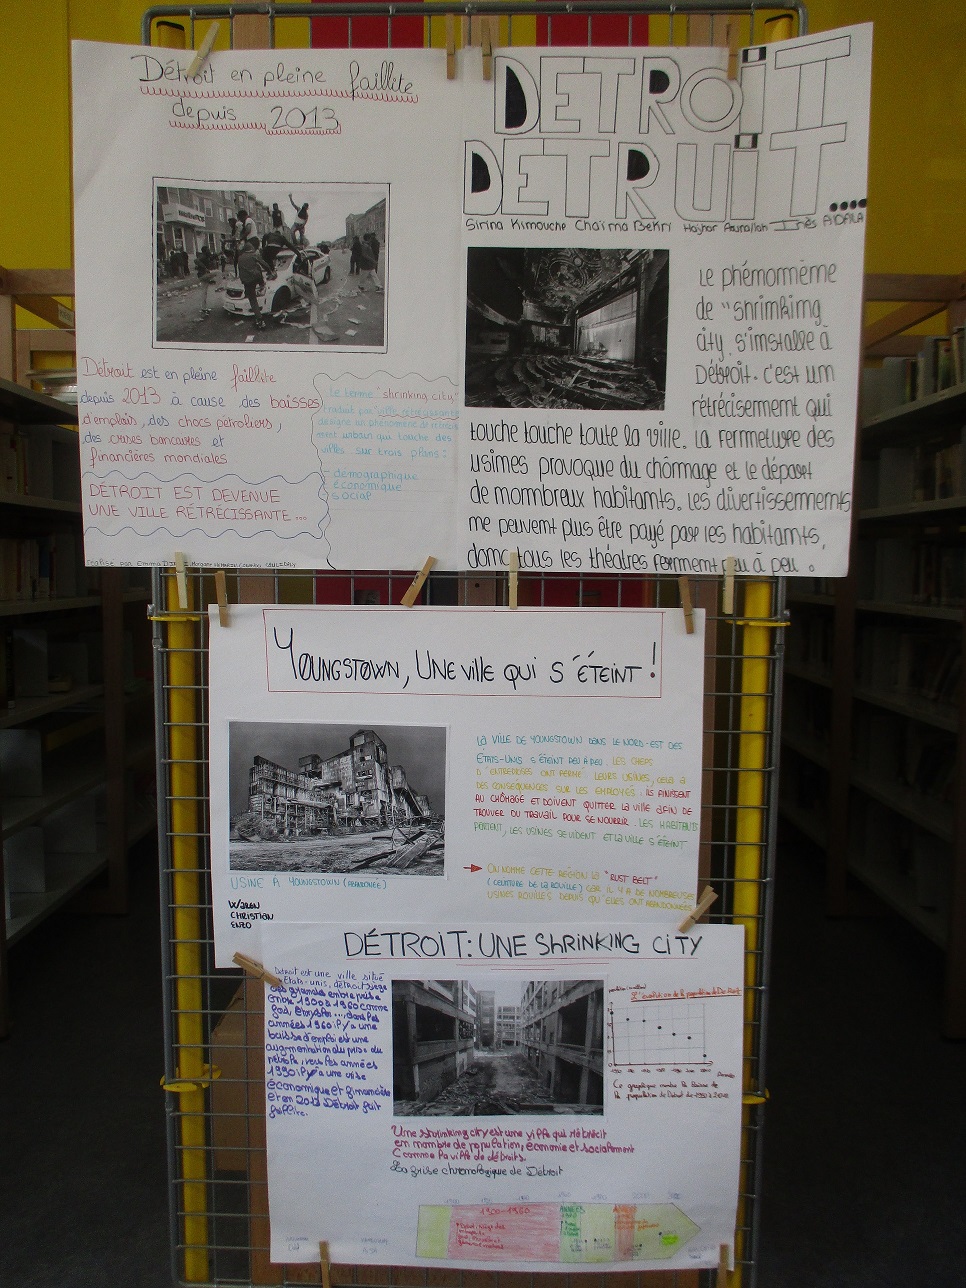 Détroit en pleine faillite
depuis 2013
Détroit est en pleine faillite
depuis 2013 à cause des baisses
d'emplois, des chocs pétroliers,
des crises bancaires et
financières mondiales
DÉTROIT EST DEVENUE
UNE VILLE RÉTRÉCISSANTE...
Le terme "shrinking city,"
traduit par "ville rétrécissante
désigne un phénomène de
ment urbain qui touche des
villes sur trois plans:
- démographique
- économique
- social
réalisé par Emma
DETROIT
DETRUIT....
Sirina Kimouche Chaïma Bekri Hajhar Inès
Le phénomième
de "shrimking
city s'imstalle à
Détroit. c'est um
rétrécisememt qui
touche touche toute la ville. La fermeture des
usimes provoque du chômage et le départ
de mombreux habitamts. Les divertissememts
me peuvemt plus être payé par les habitamts,
domc tous les théatres fermemt peu à peu.
YOUNGSTOWN, UNE ville qui S'ÉTEINT!
LA VILLE DE YOUNGSTOWN DANS LE NORD-EST DES
ÉTATS-UNIS S'ÉTEINT PEU A PEU. LES CHEFS
D'ENTREPRISES ONT FERMÉ LEURS USINES, CELA A
DES CONSÉQUENCES SUR LES EMPLOYÉS. ILS FINISSENT
AU CHÔMAGE ET DOIVENT QUITTER LA VILLE AFIN DE
TROUVER DU TRAVAIL POUR SE NOURRIR. LES HABITANTS
PARTENT, LES USINES SE VIDENT ET LA VILLE S'ÉTEINT
USINE À YOUNGSTOWN (ABANDONÉE)
→ ON NOMME CETTE RÉGION LA "RUST BELT"
(CEINTURE DE LA ROUILLE) CAR IL Y A DE NOMBREUSES
USINES ROUILLÉS DEPUIS QU'ELLES ONT ABANDONNÉES
WAREN
CHRISTIAN
ENZO
DÉTROIT: UNE SHRINKING CITY
Détroit est une ville situé
États-unis, détroit siège
des grandes entreprise
entre 1900 à 1960 comme
dans les
années 1960 il y a une
baisse d'emploi est une
augmentation du prix du
pétrole, vers les années
1990 il y a une crise
économique et financière
et en 2013 Détroit fait
faillite.
L'évolution de la population de Détroit
Années
Ce graphique montre la baisse de
la population de Détroit de 1950 à
Une shrinking city est une ville qui rétrécit
en nombre de population, économie et socialement
Comme la ville de détroits.
La frise chronologique de Détroit
1900-1960